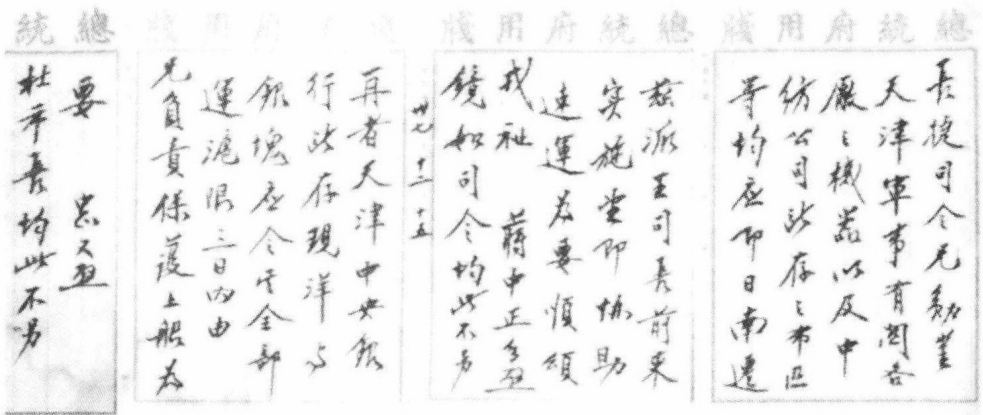 總統府用牋
長捷司令兄勛鑒
天津軍事有關各
廠之機器以及中
紡公司所存之布匹
等均應即日南遷
總統府用牋
茲派王司長前來
实施望即協助
速運為要順頌
戎祉 蔣中正
鏡如司令均此不另
廿七 十二 十五
再者天津中央銀
行所存現洋與
銀塊應令其全部
運滬限三日內由
兄負責保護上船為
總統
要
杜市長均此不另